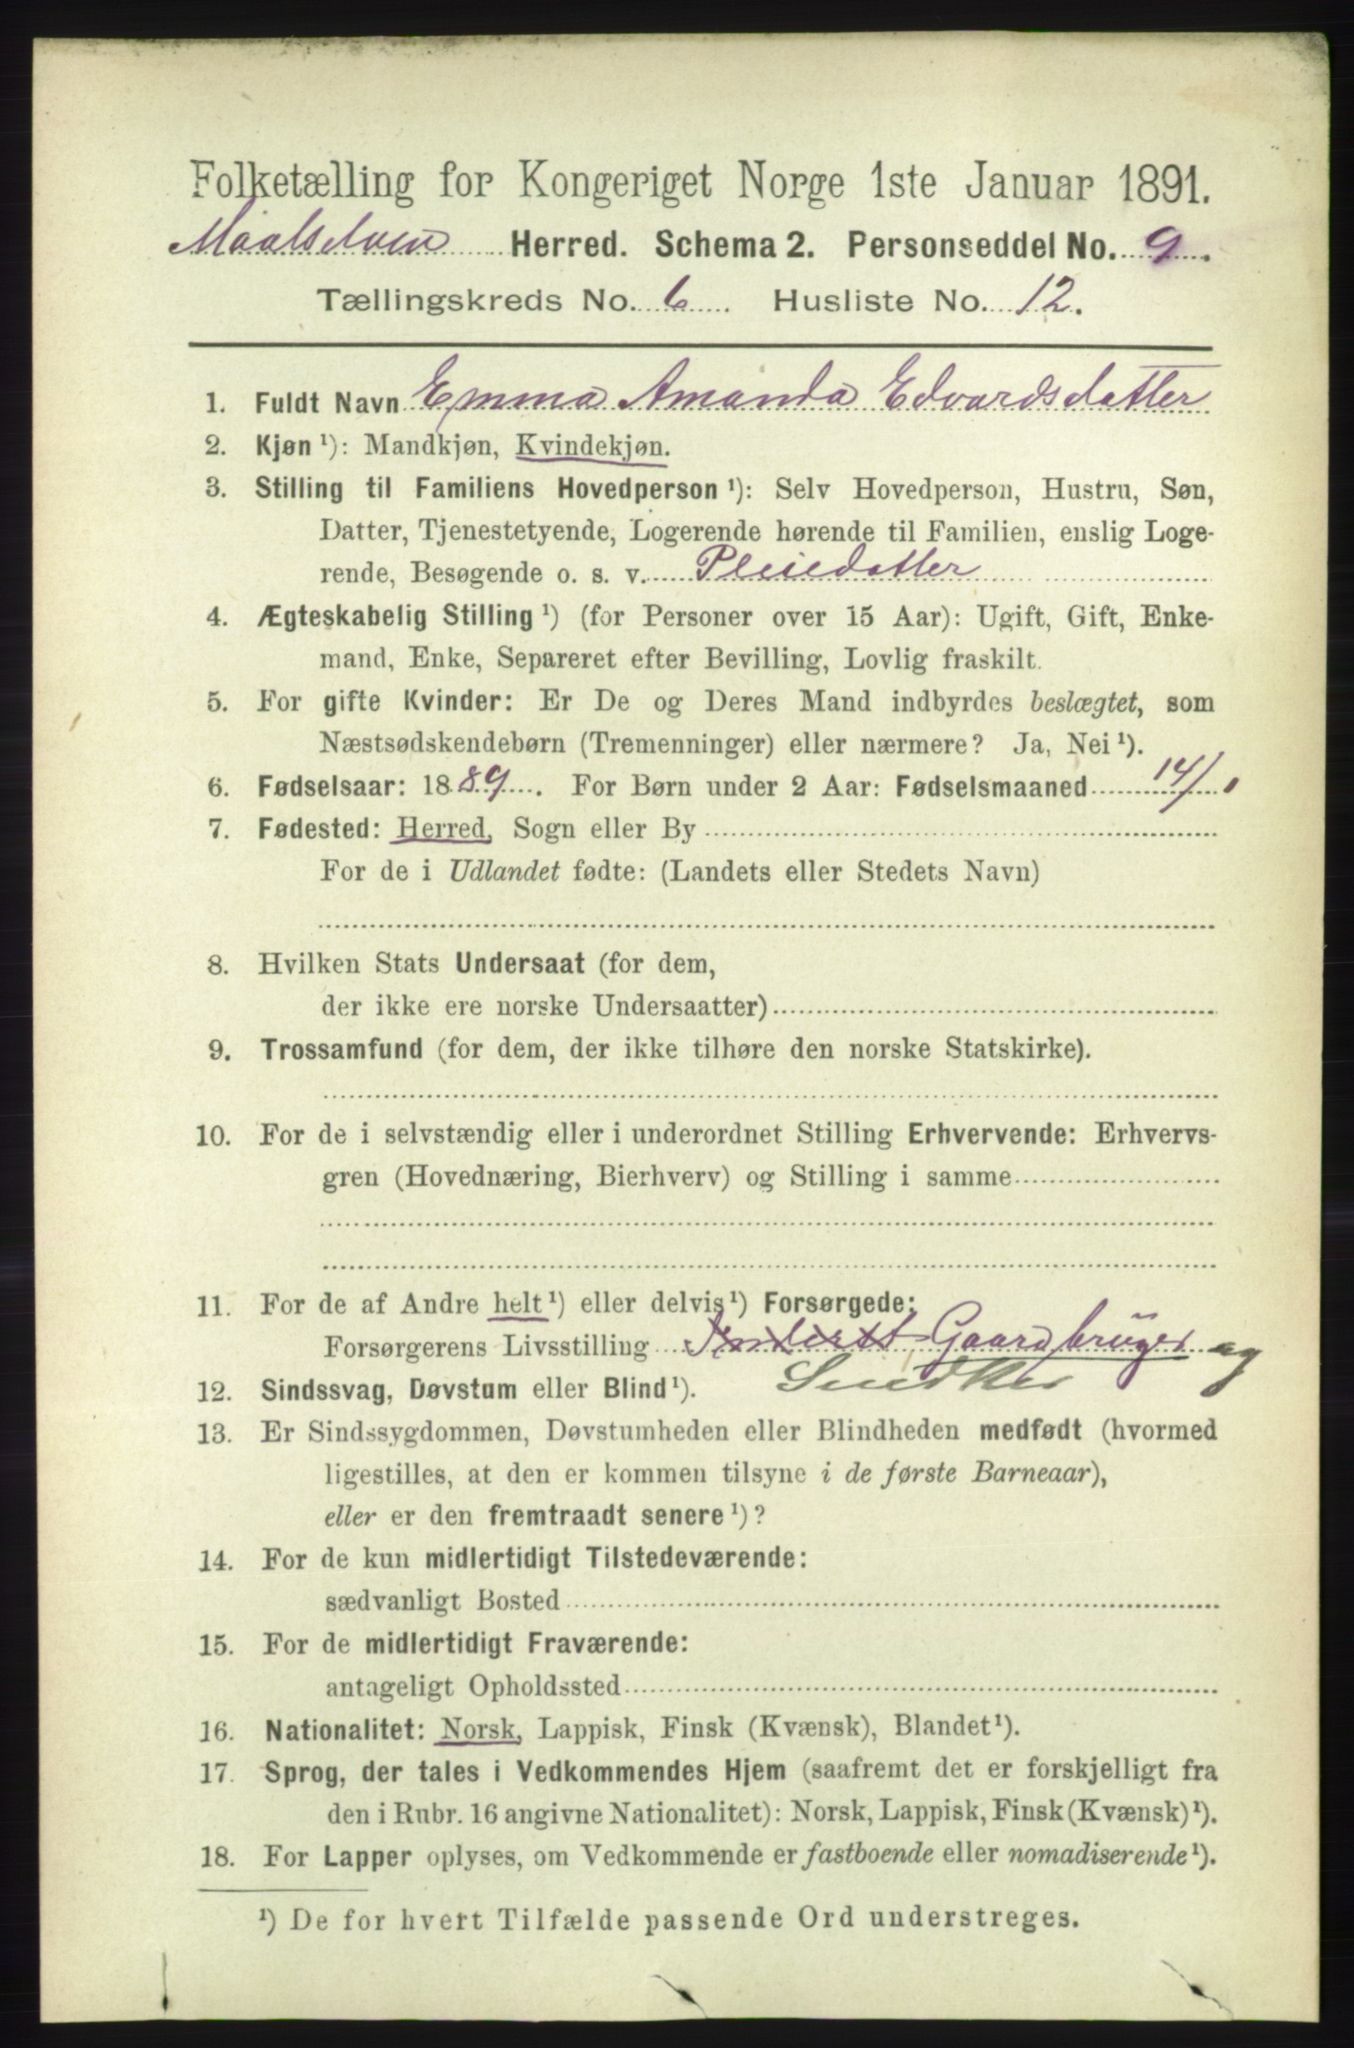 Folketælling for Kongeriget Norge 1ste Januar 1891.
Maalselven Herred. Schema 2. Personseddel No. 9.
Tællingskreds No. 6. Husliste No. 12.
1. Fuldt Navn Emma Amanda Edvardsdatter
2. Kjøn ¹): Mandkjøn, Kvindekjøn.
3. Stilling til Familiens Hovedperson ¹): Selv Hovedperson, Hustru, Søn,
Datter, Tjenestetyende, Logerende hørende til Familien, enslig Loge-
rende, Besøgende o. s. v. Pleiedatter
4. Ægteskabelig Stilling ¹) (for Personer over 15 Aar): Ugift, Gift, Enke-
mand, Enke, Separeret efter Bevilling, Lovlig fraskilt.
5. For gifte Kvinder: Er De og Deres Mand indbyrdes beslægtet, som
Næstsødskendebørn (Tremenninger) eller nærmere? Ja, Nei ¹).
6. Fødselsaar: 1889. For Børn under 2 Aar: Fødselsmaaned 14/1
7. Fødested: Herred, Sogn eller By
For de i Udlandet fødte: (Landets eller Stedets Navn)
8. Hvilken Stats Undersaat (for dem,
der ikke ere norske Undersaatter)
9. Trossamfund (for dem, der ikke tilhøre den norske Statskirke).
10. For de i selvstændig eller i underordnet Stilling Erhvervende: Erhvervs-
gren (Hovednæring, Bierhverv) og Stilling i samme
11. For de af Andre helt ¹) eller delvis ¹) Forsørgede:
Forsørgerens Livsstilling Inderst Gaardbruger og
Snedker
12. Sindssvag, Døvstum eller Blind ¹).
13. Er Sindssygdommen, Døvstumheden eller Blindheden medfødt (hvormed
ligestilles, at den er kommen tilsyne i de første Barneaar),
eller er den fremtraadt senere ¹)?
14. For de kun midlertidigt Tilstedeværende:
sædvanligt Bosted
15. For de midlertidigt Fraværende:
antageligt Opholdssted
16. Nationalitet: Norsk, Lappisk, Finsk (Kvænsk), Blandet ¹).
17. Sprog, der tales i Vedkommendes Hjem (saafremt det er forskjelligt fra
den i Rubr. 16 angivne Nationalitet): Norsk, Lappisk, Finsk (Kvænsk) ¹).
18. For Lapper oplyses, om Vedkommende er fastboende eller nomadiserende ¹).
¹) De for hvert Tilfælde passende Ord understreges.